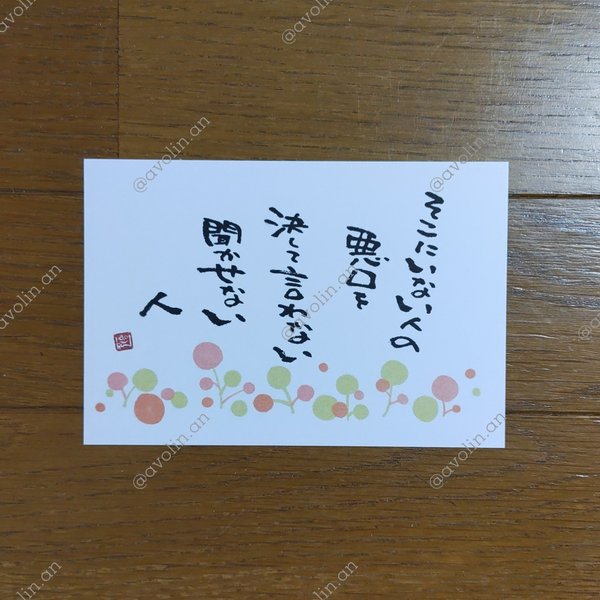 そこにいない人の
悪口を
決して言わない
聞かせない
人
@avolin.an